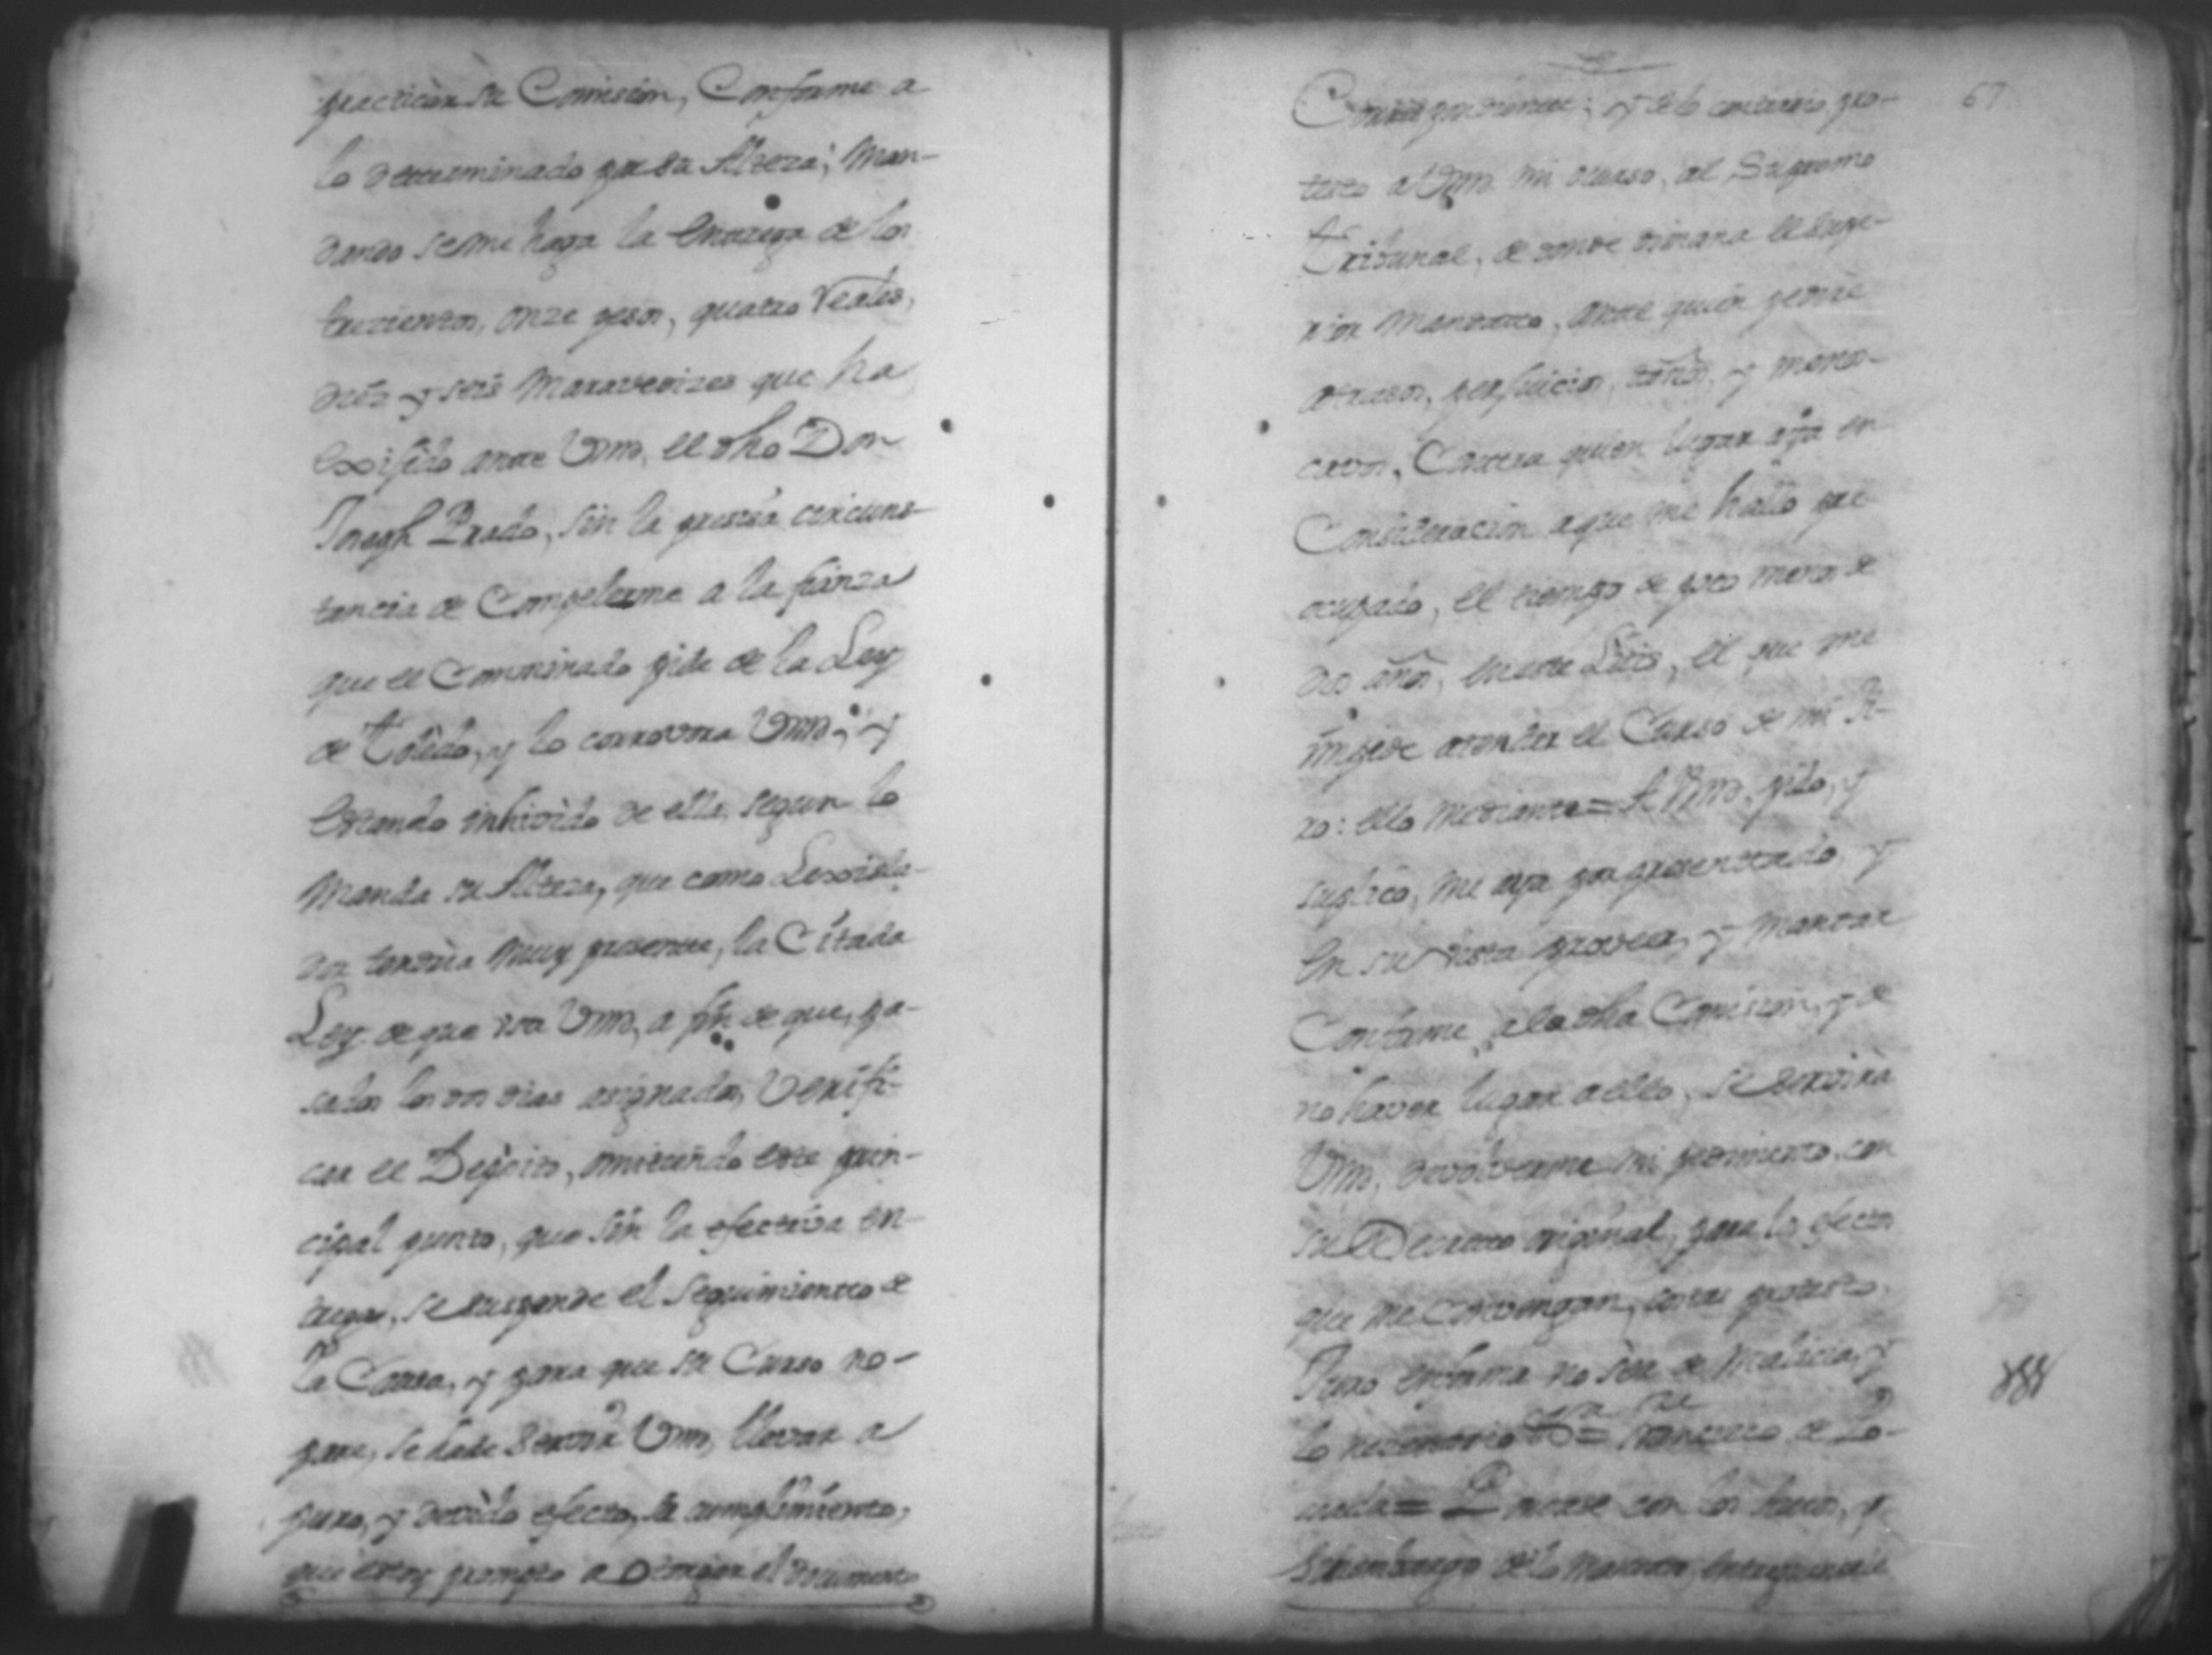 practicar su Comision, Conforme a
lo determinado por su Alteza; Man-
dando se me haga la entrega de los
trecientos, onze pesos, quatro reales,
diéz y seis Maravedizes que ha
exsisido ante Vmd. el dho Don
Joseph Prado, sin la presisa circuns-
tancia de Compelerme a la fianza
que el Comminado pide de la Ley
de Toledo, y lo corrovora Vmd; y
estando inhivido de ella, segun lo
Manda su Alteza, que como Lexisla-
dor tendria muy presente, la Citada
Ley de que usa Vmd, a fin de que, pa-
sados los dos dias asignados, Verifi-
car el Deposito, omitiendo este prin-
cipal punto, que sin la efectiva en-
trega, se suspende el seguimiento de
la Causa, y para que su Curso no-
pare, se hade servir Vmd, llevar a
puro, y devido efecto, su cumplimiento,
que estoy prompto a otorgar el documento
67
Correspondiente; y de lo contrario, pro-
testo a Vmd. mi ocurso, al Supremo
Tribunal, de donde dimana el supe-
rior Mandatto, ante quien pedire
atrasos, perjuicios, daños, y menos-
cavos, Contra quien lugar aya en
Consideracion aque me hallo pre
ocupado, el tiempo de poco menos de
dos años, en este Litis, el que me
impide atender el Curso de mi Ji-
ro: ello mediante = A Vmd. pido, y
suplico, me aya por presentado, y
en su vista provea, y Mandar
Conforme a la dha Comision, y de
no haver lugar a ello, se servira
Vmd, devolverme mi pedimento, con
su Decretto original, para los efectos
que me Convengan, costas protesto.
Juro en forma no ser de Malicia, y
lo nezesario = Francisco de Lo-
sada = con los Autos, y
sin embargo de lo entreguesele